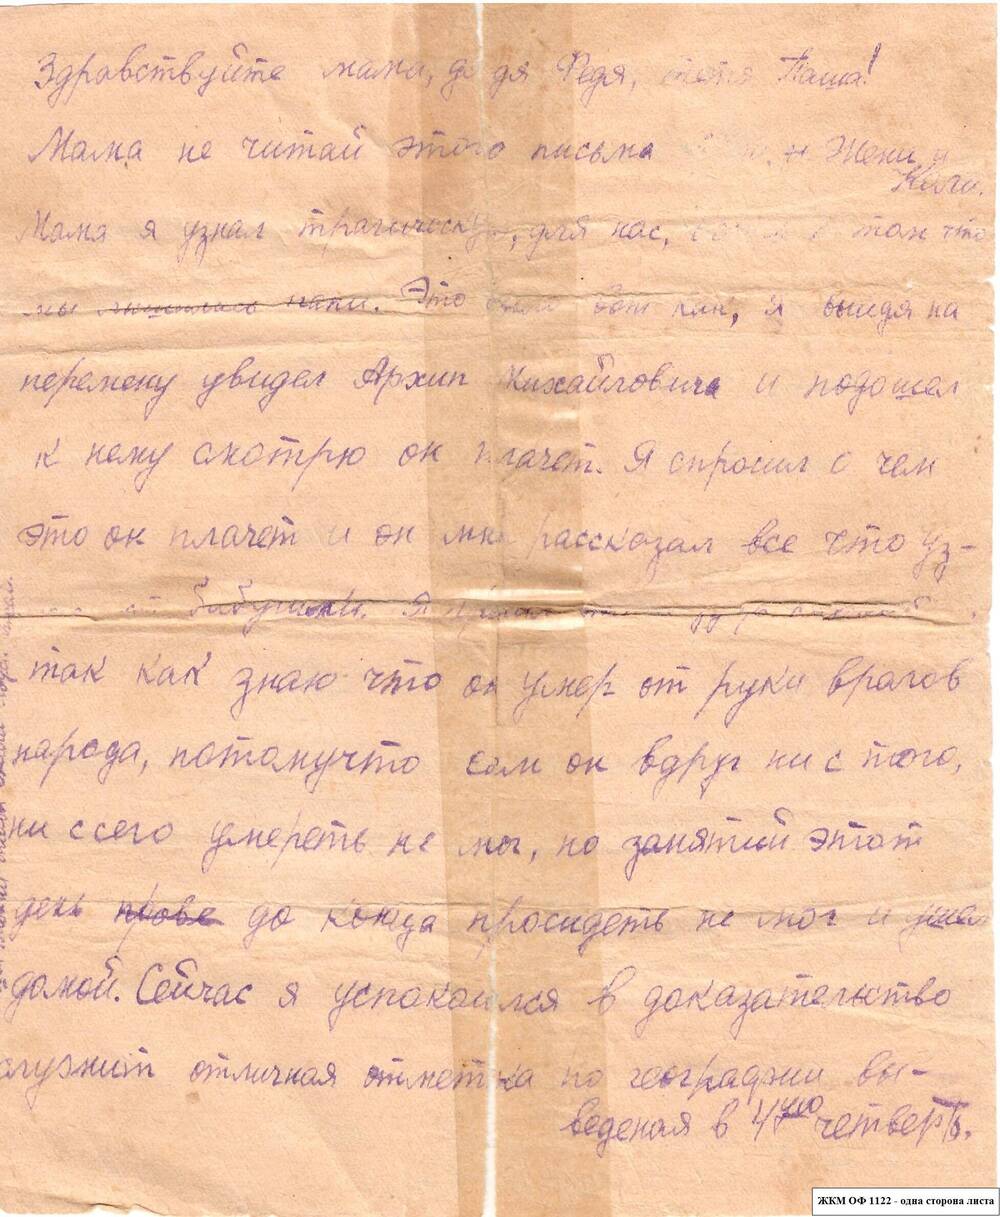 Здравствуйте мама, дядя Федя, тетя Паша!
Мама не читай этого письма Жени и
Коли.
Мама я узнал трагическую, для нас, том что
мы лишились папи. Это было вот как, я выйдя на
перемену увидел Архип Михайловича и подошол
к нему смотрю он плачет. Я спросил о чем
это он плачет и он мне рассказал все что уз-
от бабушки. Я
так как знаю что он умер от руки врагов
народа, потомучто сам он вдруг ни с того,
ни ссего умереть не мог, но занятий этот
день прове до конца просидеть не мог и ушел
домой. Сейчас я успокоился в доказательство
служит отличная отметка по географии вы-
веденая в 4ую четверть.
ЖКМ ОФ 1122 - одна сторона листа